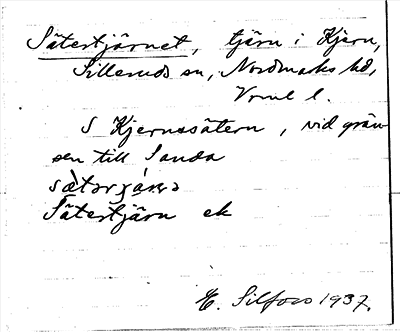 Sätestjärnet, tjärn i Kjern,
Silleruds sn, Nordmarks hd,
Vrml l.
S Kjernssätern, vid grän
sen till Sanda
Sätestjärn ek
E. Silfors 1937.